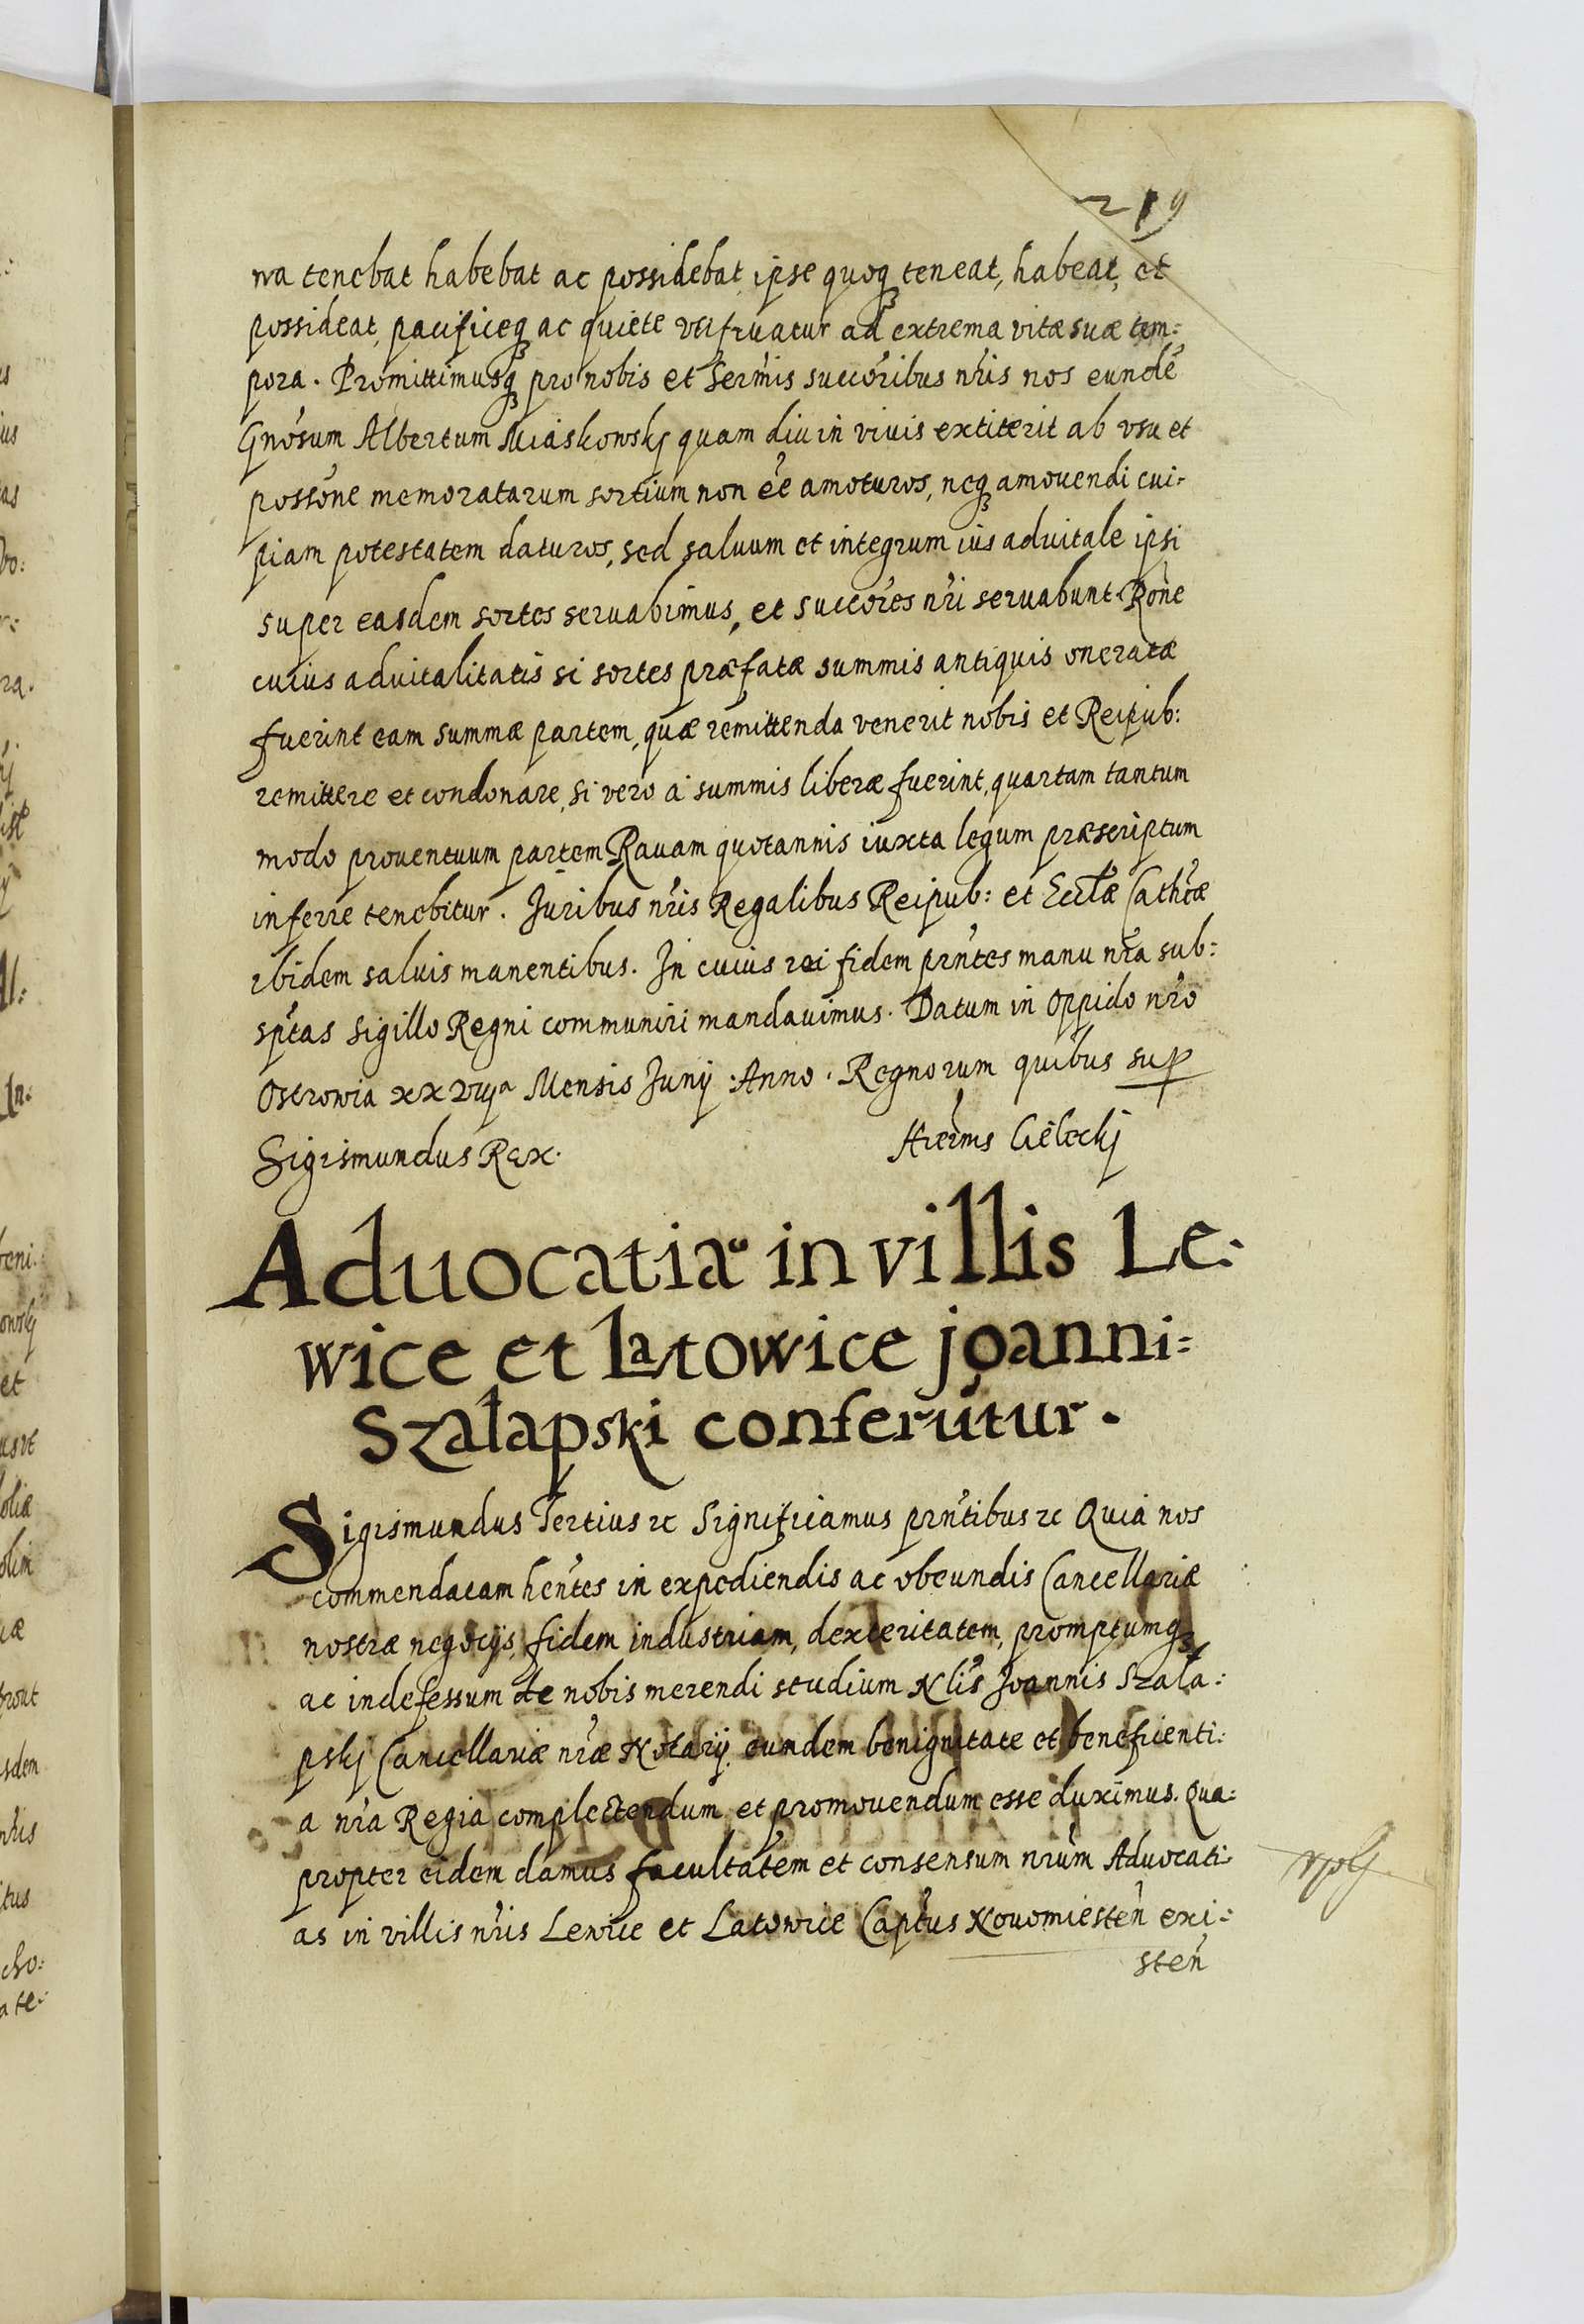 219
wa tenebat habebat ac possidebat ipse quoq3 teneat, habeat, et
possideat, pacificeq3 ac quiete utifruatur ad extrema vitæ suæ tem:
pora. Promittimusq3 pro nobis et Serm̃is succõribus nr̃is nos eundẽ
Gnõsum Albertum Miaskowskj quam diu in viuis extiterit ab vsu et
possõne memoratarum sortium non ẽe amoturos, neq3 amouendi cui-
piam potestatem daturos, sed saluum et integrum ius aduitale ipsi
super easdem sortes seruabimus, et succõres nr̃i seruabunt. Rõne
cuius aduitalitatis si sortes præfatæ summis antiquis oneratæ
fuerint eam summæ partem, quæ remittenda venerit nobis et Reipub:
remittere et condonare, si vero a summis liberæ fuerint, quartam tantum
modo prouentuum partem Rauam quotannis iuxta legum præscriptum
inferre tenebitur. Juribus nr̃is Regalibus Reipub: et Eccl̃æ Cathc̃æ
ibidem saluis manentibus. In cuius rei fidem prñtes manu nr̃a sub:
sp̃tas sigillo Regni communiri mandauimus. Datum in oppido nr̃o
Ostrowia xxviȷa Mensis Junij Anno. Regnorum quibus sup
Sigismundus Rex. Hierm̃s Cieleckj
Aduocatiæ in villis Le-
wice et Latowice joanni=
Szałapski conferũtur.
Sigismundus Tertius &c Significamus prñtibus &c Quia nos
commendatam heñtes in expediendis ac obeundis Cancellariæ
nostræ negocijs, fidem industriam, dexteritatem, promptumq3
ac indefessum de nobis merendi studium Nlis̃ Joannis Szała:
pskj Cancellariæ nr̃æ Notarij, eundem benignitate et beneficenti:
a nr̃a Regia complectendum et promouendum esse duximus. Qua:
propter eidem damus facultatem et consensum nr̃um Aduocati-
as in villis nr̃is Lewice et Latowice Capt̃us Nouomiesteñ exi-
steñ